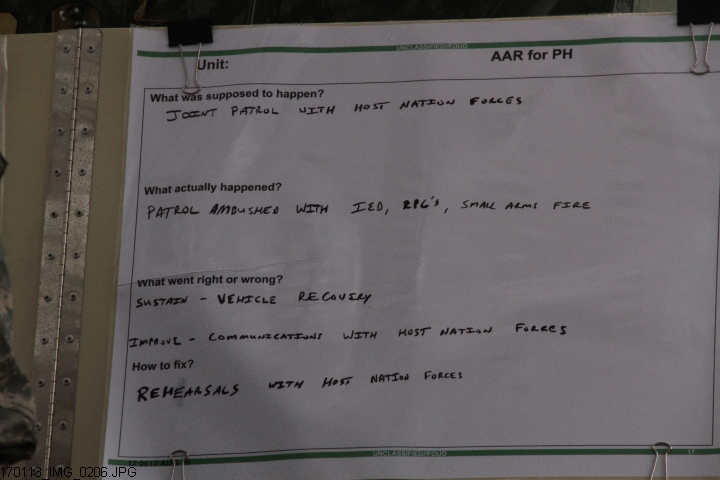 UNCLASSIFIED//FOUO
Unit: AAR for PH
What was supposed to happen?
JOINT PATROL WITH HOST NATION FORCES
What actually happened?
PATROL AMBUSHED WITH IED, RPG'S, SMALL ARMS FIRE
What went right or wrong?
SUSTAIN - VEHICLE RECOVERY
IMPROVE - COMMUNICATIONS WITH HOST NATION FORCES
How to fix?
REHEARSALS WITH HOST NATION FORCES
UNCLASSIFIED//FOUO
17
170113 IMG_0206.JPG